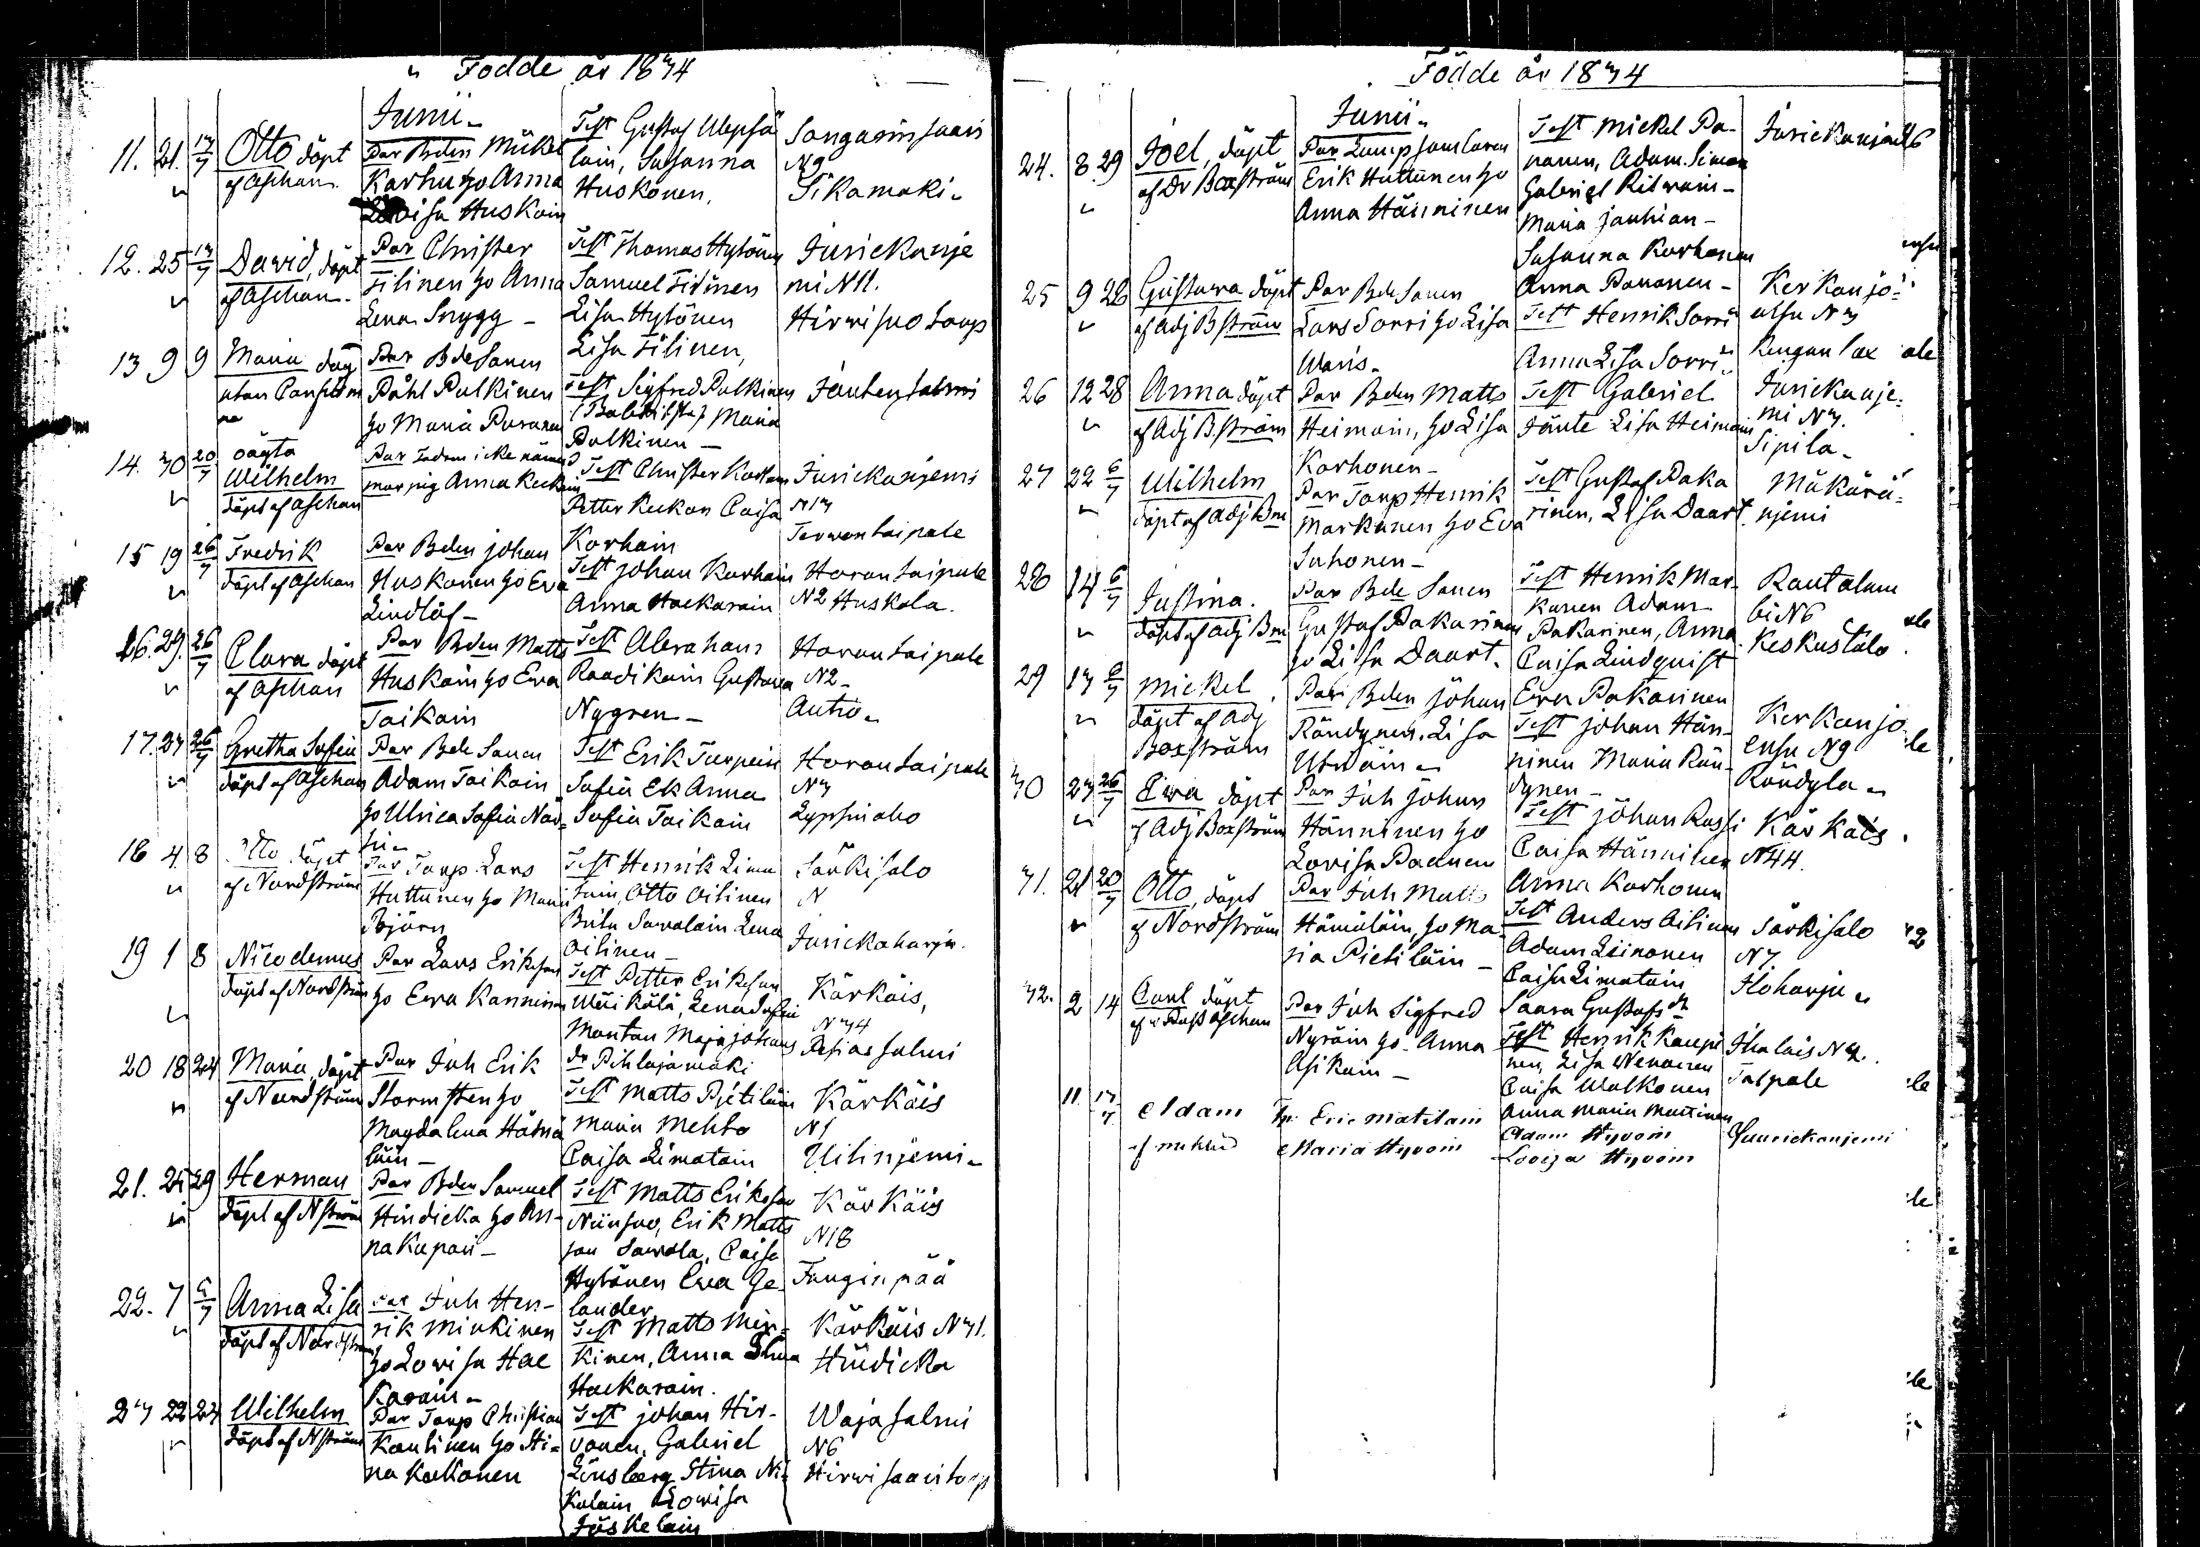 Födde år 1834
Junii
11. 21. 13/7 Otto döpt af Aschan.
Par Bden Mickel
Karhu ho Anna
Lovisa Huskoin
Test Gustaf
lain, Susanna
Huskonen,
Songarinsaari
N9
Sikamäki
12. 25 13/7 David, döpt
af Aschan.
Par Christer
Tilinen ho Anna
Lena Snygg
Test Thomas Hytönen
Samuel Tilinen
Lisa Hytönen
Lisa Tilinen,
Jusickanje
mi N11.
Hirvisuo torp
13 9 9 Maria
Par Bdesonen
Påhl Pulkinen
ho Maria Puranen
Test Sigfred Pulkinen
Maria
Pulkinen
14. 30 20/7 oägta
Wilhelm
döpt af Aschan
Par fadren icke nämnd
mor pig Anna
Test Christer
Petter Caisa
Korhain
Jusickanjemi
N13
Tervontaipale
15 19 26/7 Fredrik
döpt af Aschan
Par Bden Johan
Huskonen ho Eva
Lindlöf
Test Johan Korhain
Anna Hackarain
Horontaipale
N2 Huskola.
16. 29. 26/7 Clara döpt
af Aschan
Par Bden Matts
Huskoin ho Eva
Taikain
Test Abraham
Raadikain Gustava
Nygren
Horontaipale
N2
Autio
17. 23 26/7 Gretha Sofia
döpt af Aschan
Par Bdesonen
Adam Taikain
ho Ulrica Sofia
Test Erik Turpein
Sofia Ek Anna
Sofia Taikain
Horontaipale
N3
18 4 8 Otto döpt
af Nordström
Par Torp Lars
Huttunen ho Maria
Björn
Test Henrik Lima
tain, Otto Oilinen
Brita Savolain Lena
Oilinen
Särkisalo
N
19 1 8 Nicodemus
döpt af Nordström
Par Lars Eriksson
ho Eva Kanninen
Test Petter Eriksson
Lena Sofia
Mantan Maja Johans
dr Pihlajamäki
Jusickaharju.
Kärkäis,
N34
20 18 24 Maria, döpt
af Nordström
Par Inh Erik
Stormsten ho
Magdalena Hämä
läin
Test Matts Pietiläin
Maria Mehto
Caisa Limatain
Kärkäis
N1
Uilinjemi
21. 25 29 Herman
döpt af Nström
Par Bden Samuel
Hindicka ho An
na Kupari
Test Matts Eriksson
Niinsuo, Erik Matts
son Savola, Caisa
Hytönen Eva Ge
lander
Kärkäis
N18
Tunginpää
22. 7 6/7 Anna Lisa
döpt af Nordström
Par Inh Hen-
rik Minkinen
ho Lovisa Hac
karain
Test Matts Min-
kinen, Anna
Hackarain.
Kärkäis N31.
Hindicka
23 22 23 Wilhelm
döpt af Nström
Par Torp Christian
Kautinen ho Sti-
na Kokkonen
Test Johan Hir-
vonen, Gabriel
Lönsberg Stina Ni
kulain Lovisa
Jäskelain
Wajasalmi
N6
Hirvisaari torp
Födde år 1834
Junii
24. 8. 29 Joel, döpt
af Dr Boxström
Erik Huttunen ho
Anna Hänninen
Test Mickel Pa-
nanen, Adam Simon
Gabriel Ritvain
Maria Jauhian
Susanna Korhonen
Anna Pananen
Jusickanjemi 6
25 9 28 Gustava döpt
af Adj Bström
Par Bdesonen
Lars Sorri ho Lisa
Waris
Test Henrik Sorri
Anna Lisa Sorri
Kerkonjo-
ensu N3
26 12 28 Anna döpt
af Adj Bström
Par Bden Matts
Heimoin, ho Lisa
Korhonen
Test Gabriel
Jänte Lisa Heimoin
Jusickanje-
mi N3.
Sipila
27 22 6/7 Wilhelm
döpt af Adj Bm
Par Torp Henrik
Markunen ho Eva
Suhonen
Test Gustaf Paka
rinen, Lisa Daart.
Mäkärä-
njemi
28 14 6/7 Justina.
döpt af Adj Bm
Par Bdesonen
Gustaf Pakarinen
ho Lisa Daart.
Test Henrik Mar-
kunen Adam
Pakarinen, Anna
Caisa Lindquist
Eva Pakarinen
Rautalam
bi N6
Keskustalo.
29 13 6/7 Mickel,
döpt af Adj
Boxström
Par Bden Johan
Rändynen, Lisa
Utriain
Test Johan Hän-
ninen Maria Rän-
dynen
Kerkonjo
ensu N9
Rändylä
30 23 26/7 Eva döpt
af Adj Boxström
Par Inh Johan
Hänninen ho
Lovisa Paanen
Test Johan Rossi
Caisa Hänninen
Anna Korhonen
Kärkäis.
N44.
31. 21 20/7 Otto, döpt
af Nordström
Par Inh Matts
Hämäläin, ho Ma-
ria Pietiläin
Test Anders Oilinen
Adam Leinonen
Caisa Limatain
Saara Gustafs dr
Särkisalo
N7
Iloharju
32. 2 14 Carl döpt
af Past Aschan
Par Inh Sigfred
Nyräin ho Anna
Asikain
Test Henrik Kaupi
nen, Lisa Nenonen
Caisa Walkonen
Anna Maria Martinen
Taipale
11. 13/7 Adam
Tp. Eric Matilain
Maria Hyvoin
Adam Hyvoin
Lovisa Hyvoin
Jusickanjemi